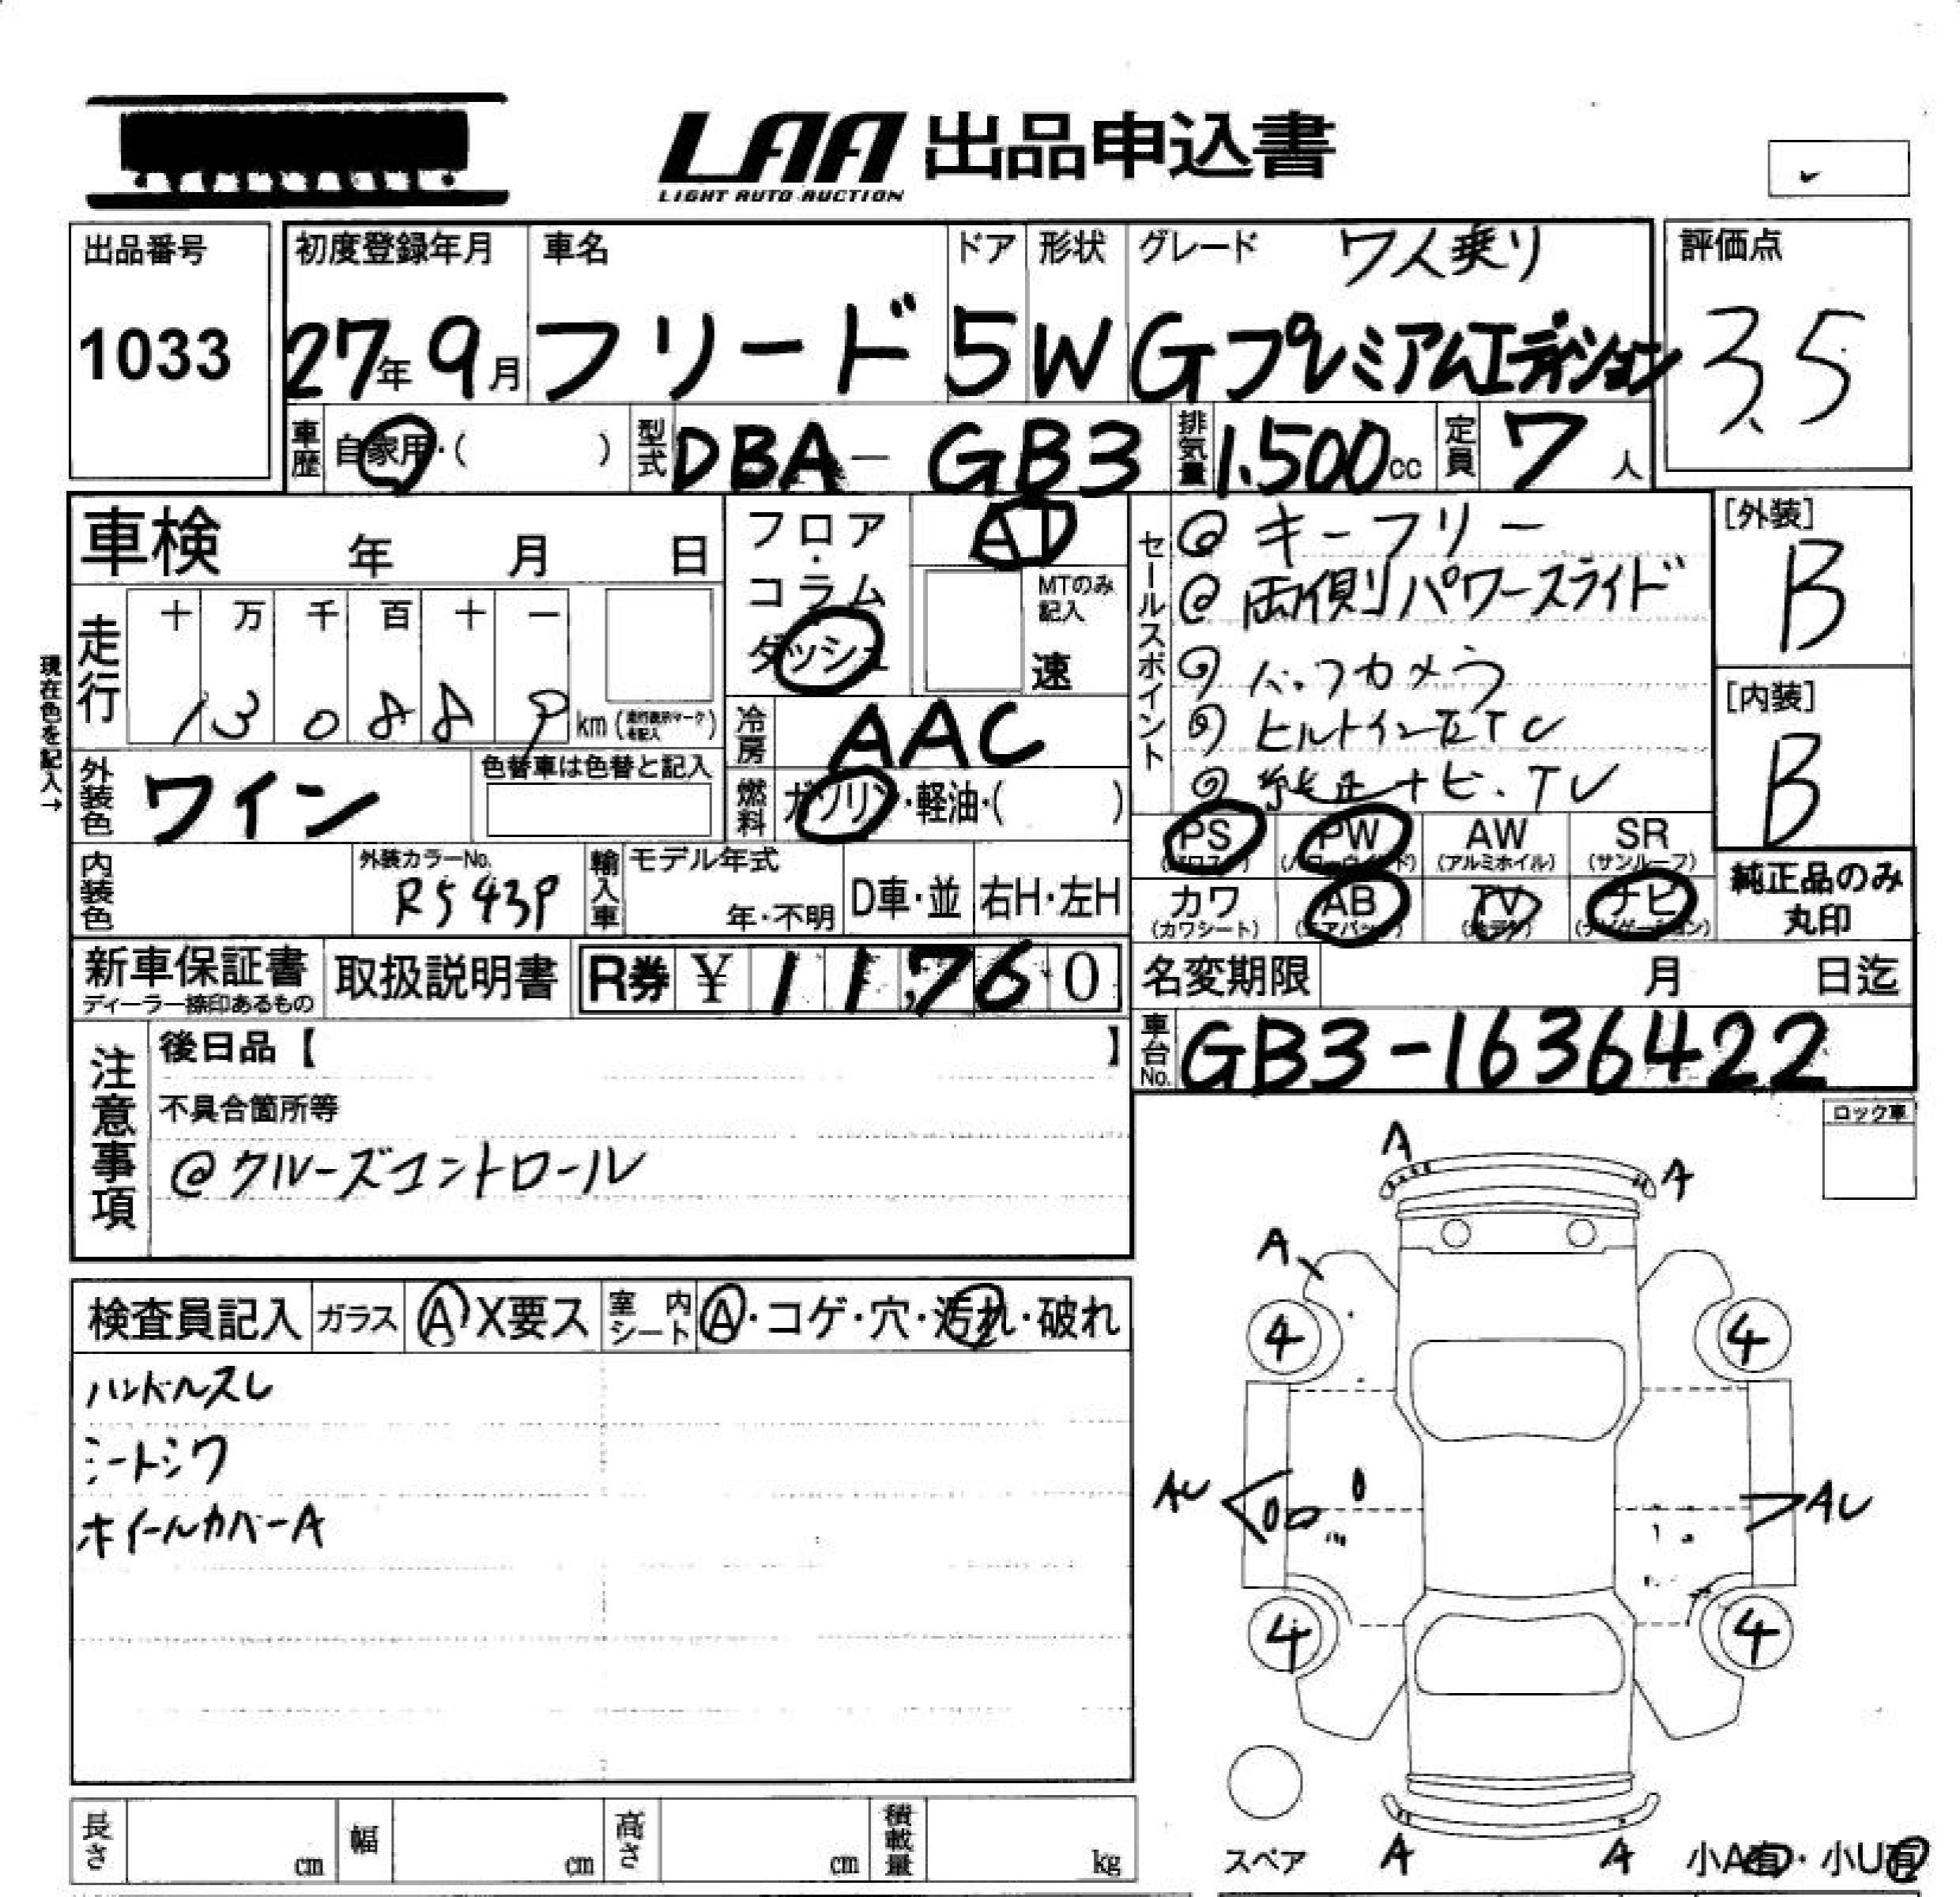 LAA 出品申込書
LIGHT AUTO AUCTION
出品番号
1033
初度登録年月
27年9月
車名
フリード
ドア
5
形状
W
グレード 7人乗り
Gプレミアムエディション
評価点
3.5
車歴 自家用・( )
型式 DBA-GB3
排気量 1.500cc
定員 7人
車検 年 月 日
フロア・コラム ダッシュ
AT
MTのみ記入
速
セールスポイント
@ キーフリー
@ 両側パワースライド
@ バックカメラ
@ ビルトインETC
@ 純正ナビ.TV
[外装]
B
[内装]
B
現在色を記入→
走行
十 万 千 百 十 一
1 3 0 8 8 9 km
冷房 AAC
外装色 ワイン
色替車は色替と記入
燃料 ガソリン・軽油・( )
内装色
外装カラーNo.
R543P
輸入車
モデル年式
年・不明
D車・並
右H・左H
PS PW AW SR
(アルミホイル) (サンルーフ)
カワ AB TV ナビ
(カワシート)
純正品のみ
丸印
新車保証書
ディーラー捺印あるもの
取扱説明書
R券 ¥ 11,760
名変期限 月 日迄
車台No. GB3-1636422
注意事項
後日品【 】
不具合箇所等
@クルーズコントロール
ロック車
検査員記入 ガラス A X要ス 室内シート A・コゲ・穴・汚れ・破れ
ハンドルスレ
シートシワ
ホイールカバーA
A
A
A
4
4
AU
AU
4
4
スペア
A
A
小A有・小U有
長さ cm 幅 cm 高さ cm 積載量 kg